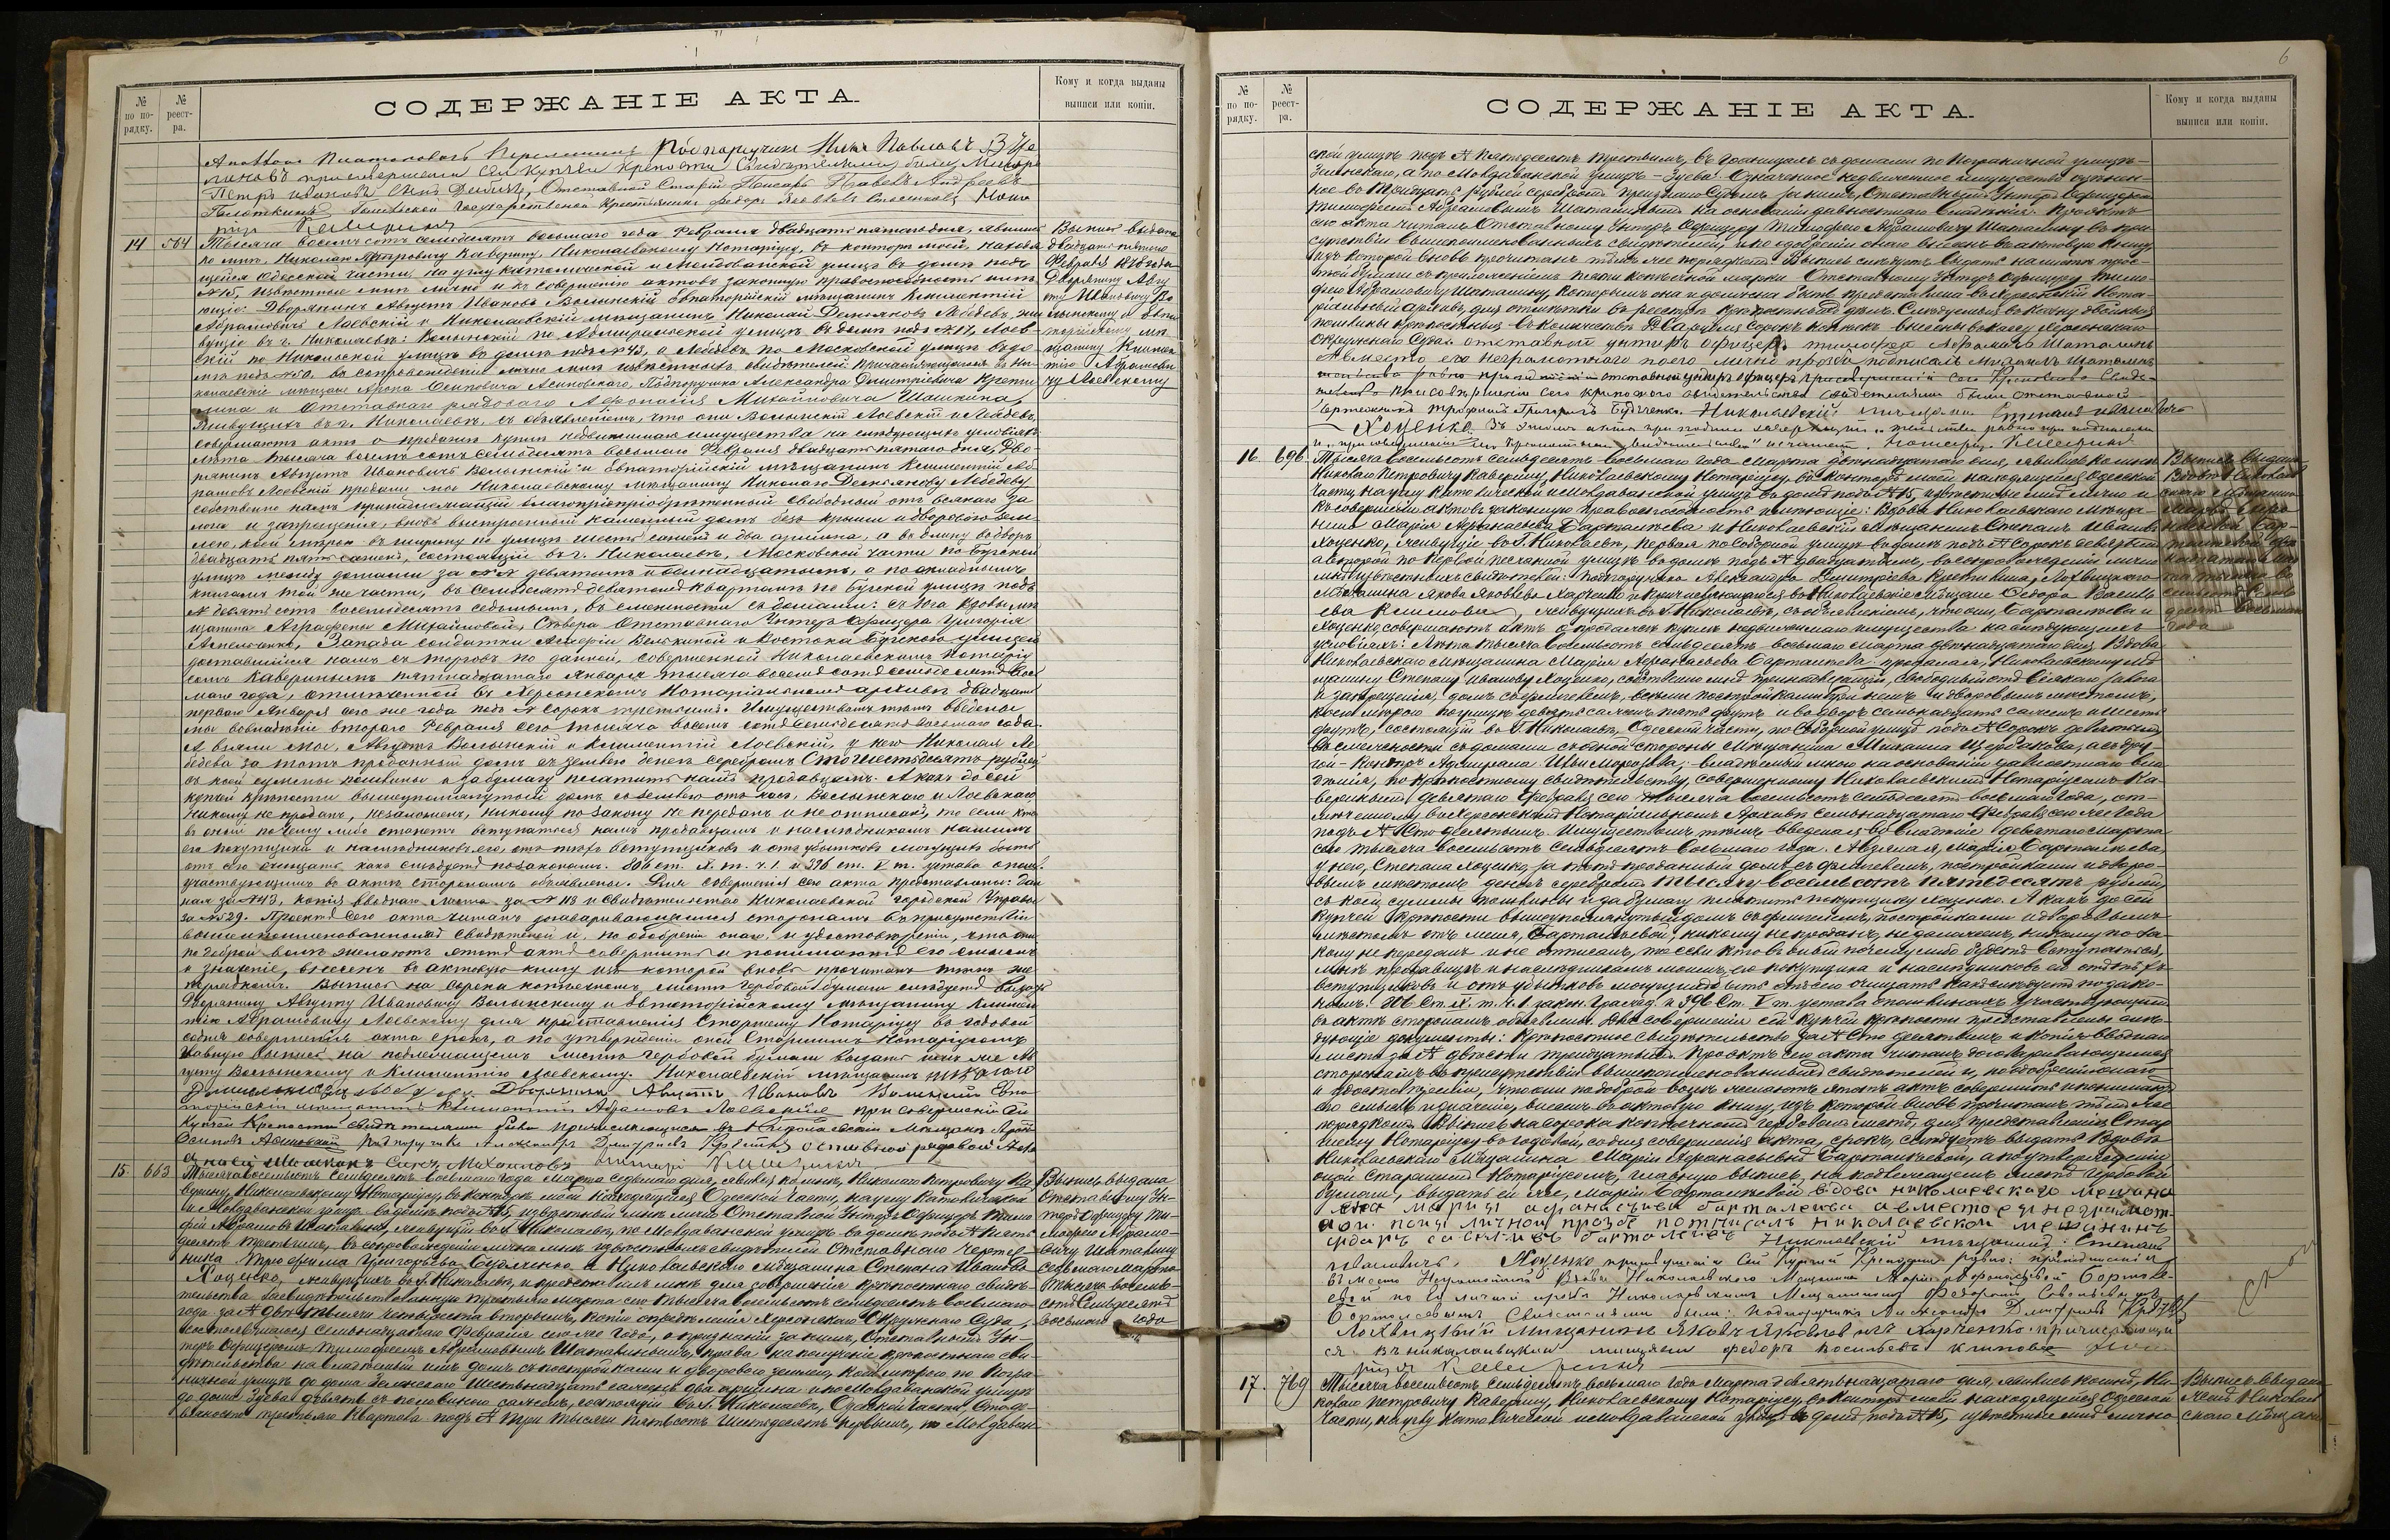 № по по-рядку.
№ реест-ра.
СОДЕРЖАНІЕ АКТА.
Кому и когда выданы выписи или копіи.
Подпоручикъ Илья Павловъ
совершеніи сей купчей крепости Свидѣтелями были
Петръ Ивановъ Отставной Старшій Писарь Павелъ Андреевъ
14 564 Тысяча восемьсотъ семьдесятъ восьмаго года Февраля двадцать пятаго дня, явились
ко мнѣ, Николаю Петровичу Каверину, Николаевскому Нотаріусу, въ конторѣ моей, находя
щейся Одесской части, на углу католической и Молдаванской улицъ въ домѣ подъ
№ 15, извѣстные мнѣ лично и къ совершенію актовъ законную правоспособность имѣ
ющіе: Дворянинъ Августъ Ивановъ Волынскій Евпаторійскій мѣщанинъ Климентій
Абрамовъ Лоевскій и Николаевскій мѣщанинъ Николай Демьяновъ Лебедевъ, жи
вущіе въ г. Николаевѣ: Волынскій по Адмиральской улицѣ въ домѣ подъ № 17, Лоев
скій по Никольской улицѣ въ домѣ подъ № 43, а Лебедевъ по Московской улицѣ въ до
мѣ подъ № 50, въ сопровожденіи лично мнѣ извѣстныхъ свидѣтелей: причисляющагося въ Ни
колаевскіе мѣщане Арона Осиповича Асиновскаго, Подпоручика Александра Дмитріевича Крети
нина и Отставнаго рядоваго Афанасія Михайловича Шашкина,
живущихъ въ г. Николаевѣ, съ объявленіемъ, что они Волынскій Лоевскій и Лебедевъ,
совершаютъ актъ о продажѣ купли недвижимаго имущества на слѣдующихъ условіяхъ:
лѣта тысяча восемь сотъ семьдесятъ восьмаго Февраля двадцать пятаго дня, Дво
рянинъ Августъ Ивановичъ Волынскій и Евпаторійскій мѣщанинъ Климентій Аб
рамовъ Лоевскій продали мы Николаевскому мѣщанину Николаю Демьянову Лебедеву
собственно намъ принадлежащій благопріобрѣтенный свободный отъ всякаго за
лога и запрещенія, вновь выстроенный каменный домъ безъ крыши и дворовою зем
лею, коей мѣрою въ ширину по улицѣ шесть саженей и два аршина, а въ длину во дворъ
двадцать пять саженей, состоящій въ г. Николаевѣ, Московской части по Бугской
улицѣ между домами за №№ девятымъ и одинадцатымъ, а по окладнымъ
книгамъ той же части, въ семьдесятъ девятомъ кварталѣ по Бугской улицѣ подъ
№ девять сотъ восемьдесятъ седьмымъ, въ смежности съ домами: съ Юга вдовы мѣ
щанина Аграфены Михайловой, Сѣвера Отставнаго Унтеръ Офицера Григорія
Запада солдатки и Востока Бугскою улицею
доставшійся намъ съ торговъ по данной, совершенной Николаевскимъ Нотаріу
сомъ Каверинымъ пятнадцатаго Января тысяча восемьсотъ семьдесятъ вось
маго года, отмѣченной въ Херсонскомъ Нотаріальномъ архивѣ двадцать
перваго Января сего же года подъ № Сорокъ третьимъ. Имуществомъ тѣмъ введены
мы во владѣніе втораго Февраля сего тысяча восемь сотъ семьдесятъ восьмаго года.
А взяли мы, Августъ Волынскій и Климентій Лоевскій, у него Николая Ле
бедева за тотъ проданный домъ съ землею денегъ серебромъ Сто шестьдесятъ рублей
съ коей суммы пошлины и за бумагу платить намъ продавцамъ. А какъ до сей
купчей крѣпости вышеупомянутый домъ съ землею отъ насъ, Волынскаго и Лоевскаго
никому не проданъ, не заложенъ, никому по закону не переданъ и не отписанъ, то если кто
въ оный почему либо станетъ вступаться намъ продавцамъ и наслѣдникамъ нашимъ
его покупщика и наслѣдниковъ его, отъ тѣхъ вступщиковъ и отъ убытковъ могущихъ быть
отъ сего очищать какъ слѣдуетъ по законамъ. 806 ст. X т. ч. 1 и 396 ст. V т. устава о пошл.
участвующимъ въ актѣ сторонамъ объявлены. Для совершенія сего акта представлены: дан
ная за № 43, копія вводнаго листа за № 118 и свидѣтельство Николаевской городской Управы
за № 29. Проектъ сего акта читанъ договаривающимся сторонамъ въ присутствіи
вышепоименованныхъ свидѣтелей и, по одобреніи онаго, и удостовѣреніи, что они
по доброй волѣ желаютъ этотъ актъ совершить и понимаютъ его смыслъ
и значеніе, внесенъ въ актовую книгу изъ которой вновь прочитанъ тѣмъ же
порядкомъ. Выпись на сорока копѣечномъ листѣ гербовой бумаги слѣдуетъ выдать
Дворянину Августу Ивановичу Волынскому и Евпаторійскому мѣщанину Климен
тію Абрамовичу Лоевскому для представленія Старшему Нотаріусу въ годовой
со дня совершенія акта срокъ, а по утвержденіи оной Старшимъ Нотаріусомъ
главную выпись на подлежащемъ листѣ гербовой бумаги выдать имъ же Ав
густу Волынскому и Климентію Лоевскому. Николаевскій мѣщанинъ Николай
Демьяновъ Лебедевъ. Дворянинъ Августъ Ивановъ Волынскій Евпа
торійскій мѣщанинъ Климентій Абрамовъ Лоевскій при совершеніи сей
купчей крепости свидѣтелями были причисляющійся въ Николаевскіе Мѣщане Аронъ
Осиповъ Асиновскій подпоручикъ Александръ Дмитріевъ Кретининъ отставной рядовой Афа
насій Шашкинъ Сынъ Михайловъ Нотаріусъ Каверинъ
Выпись выдана
двадцать пятаго
Февраля 1878 года
Дворянину Авгу
сту Ивановичу Во
лынскому и Евпа
торійскому мѣ
щанину Климен
тію Абрамови
чу Лоевскому
15. 663 Тысяча восемьсотъ семьдесятъ восьмаго года Марта седьмаго дня, явился ко мнѣ, Николаю Петровичу Ка
верину, Николаевскому Нотаріусу, въ конторѣ моей находящейся Одесской части, на углу Католической
и Молдаванской улицъ въ домѣ подъ № 15, извѣстный мнѣ лично Отставной Унтеръ Офицеръ Тимо
фей Абрамовъ Шаталинъ, живущій въ г. Николаевѣ, по Молдаванской улицѣ въ домѣ подъ № пять
десятъ третьимъ, въ сопровожденіи лично мнѣ извѣстныхъ свидѣтелей Отставнаго Черте
жника Трофима Григорьева Будяченко, и Николаевскаго мѣщанина Степана Иванова
Хоценко, живущихъ въ г. Николаевѣ, и предъявилъ мнѣ для совершенія крѣпостнаго свидѣ
тельства засвидѣтельствованную третьяго Марта сего тысяча восемьсотъ семьдесятъ восьмаго
года за № двѣ тысячи четыреста вторымъ, копію опредѣленія Херсонскаго Окружнаго Суда,
состоявшагося семьнадцатаго Февраля сего же года, о признаніи за нимъ, Отставнымъ Ун
теръ Офицеромъ Тимофеемъ Абрамовымъ Шаталинымъ, права на полученіе крѣпостнаго сви
дѣтельства на владѣемый имъ домъ съ постройками и дворовою землею, коей мѣрою по Погра
ничной улицѣ до дома Зелинскаго Шестьнадцать саженъ два аршина и по Молдаванской улицѣ
до дома Зуева девять съ половиною саженъ, состоящій въ г. Николаевѣ, Одесской части,
третьяго квартала подъ № три тысячи пятьсотъ шестьдесятъ первымъ, по Молдаван
Выпись выдана
Отставному Ун
теръ Офицеру Ти
мофею Абрамо
вичу Шаталину
седьмаго Марта
тысяча восемь
сотъ семьдесятъ
восьмаго года
6
№ по по-рядку.
№ реест-ра.
СОДЕРЖАНІЕ АКТА.
Кому и когда выданы выписи или копіи.
ской улицѣ подъ № пятьдесятъ третьимъ, въ границахъ съ домами по Пограничной улицѣ
Зелинскаго, а по Молдаванской улицѣ – Зуева. Означенное недвижимое имущество оцѣнен
ное въ тридцать рублей серебромъ признано Судомъ за нимъ, Отставнымъ Унтеръ Офицеромъ
Тимофеемъ Абрамовымъ Шаталинымъ на основаніи давностнаго владѣнія. Проектъ
сего акта читанъ Отставному Унтеръ Офицеру Тимофею Абрамовичу Шаталину въ при
сутствіи вышепоименованныхъ свидѣтелей, и по одобреніи онаго внесенъ въ актовую книгу
изъ которой вновь прочитанъ тѣмъ же порядкомъ. Выпись слѣдуетъ выдать на листѣ прос
той бумаги съ приложеніемъ пяти копѣечной марки Отставному Унтеръ Офицеру Тимо
фею Абрамовичу Шаталину, которымъ она и должна быть представлена въ Херсонскій Нота
ріальный архивъ, для отмѣтки въ реестрѣ крѣпостныхъ дѣлъ. Слѣдующія въ казну двойныя
пошлины крѣпостныя въ количествѣ Два рубля сорокъ копѣекъ внесены въ кассу Херсонскаго
Окружнаго Суда. отставной унтеръ офицеръ тимофей Абрамовъ Шаталинъ
А вместо его неграмотнаго по его личной прозбѣ подписалъ
При совершеніи сего крѣпостнаго свидѣтельства свидѣтелями были отставной
Чертежникъ Трофимъ Григорьевъ Будяченко. Николаевскій мѣщанинъ Степанъ Ивановичъ
Хоценко.
Нотаріусъ Каверинъ
16. 696. Тысяча восемьсотъ семьдесятъ восьмаго года Марта двѣнадцатаго дня, явились ко мнѣ
Николаю Петровичу Каверину, Николаевскому Нотаріусу, въ конторѣ моей находящейся Одесской
части, на углу Католической и Молдаванской улицъ въ домѣ подъ № 15, извѣстные мнѣ лично и
къ совершенію актовъ законную правоспособность имѣющіе: Вдова Николаевскаго мѣща
нина Марія Афанасьева Барталѣева и Николаевскій мѣщанинъ Степанъ Ивановъ
Хоценко, живущіе въ г. Николаевѣ, первая по Соборной улицѣ въ домѣ подъ № Сорокъ девятымъ
а второй по Первой Песчаной улицѣ въ домѣ подъ № двадцатымъ, въ сопровожденіи лично
мнѣ извѣстныхъ свидѣтелей: подпоручика Александра Дмитріева Кретинина, Лохвицкаго
мѣщанина Якова Яковлева Харченко и причисляющагося въ Николаевскіе мѣщане Федора Василь
ева Климова, живущихъ въ г. Николаевѣ, съ объявленіемъ, что они, Барталѣева и
Хоценко, совершаютъ актъ о продажѣ куплѣ недвижимаго имущества на слѣдующихъ
условіяхъ: Лѣта тысяча восемьсотъ семьдесятъ восьмаго Марта двѣнадцатаго дня Вдова
Николаевскаго мѣщанина Марія Афанасьева Барталѣева продала я, Николаевскому Мѣ
щанину Степану Иванову Хоценко, собственно мнѣ принадлежащій, свободный отъ всякаго залога
и запрещенія, домъ съ флигелемъ, всѣми постройками при немъ и дворовымъ мѣстомъ,
коего мѣрою по улицѣ девять саженъ пять футъ и во дворъ семьнадцать саженъ и шесть
футъ, состоящій въ г. Николаевѣ, Одесской части, по Соборной улицѣ подъ № Сорокъ девятымъ
въ смежности съ домами съ одной стороны мѣщанина Михаила Щербакова, а съ дру
гой – Контръ Адмирала Ильи Морозова; владѣемый мною на основаніи давностнаго вла
дѣнія, по крѣпостному свидѣтельству, совершенному Николаевскимъ Нотаріусомъ Ка
веринымъ девятаго Февраля сего тысяча восемьсотъ семьдесятъ восьмаго года, от
мѣченному въ Херсонскомъ Нотаріальномъ Архивѣ семьнадцатаго Февраля сего же года
подъ № Сто девятымъ. Имуществомъ тѣмъ введена я во владѣніе девятаго Марта
сего тысяча восемьсотъ семьдесятъ восьмаго года. А взяла я, Марія Барталѣева,
у него, Степана Хоценко, за тотъ проданный домъ съ флигелемъ, постройками и дворо
вымъ мѣстомъ денегъ серебромъ тысячу восемьсотъ пятьдесятъ рублей,
съ коей суммы пошлины и за бумагу платить покупщику Хоценко. А какъ до сей
купчей крѣпости вышеупомянутый домъ съ флигелемъ, постройками и дворовымъ
мѣстомъ отъ меня, Барталѣевой, никому не проданъ, не заложенъ, никому по за
кону не переданъ и не отписанъ, то если кто въ оный почему либо будетъ вступаться,
мнѣ продавицѣ и наслѣдникамъ моимъ, его покупщика и наслѣдниковъ его отъ тѣхъ
вступщиковъ и отъ убытковъ могущихъ быть отъ сего очищать какъ слѣдуетъ по зако
намъ. 806 Ст. X т. ч. 1 закон. Гражд. и 396 Ст. V т. устава о пошлинахъ участвующимъ
въ актѣ сторонамъ объявлены. Для совершенія сей купчей крѣпости представлены слѣ
дующіе документы: крѣпостное свидѣтельство за № Сто девятымъ и копія вводнаго
листа за № двѣсти тридцатымъ. Проектъ сего акта читанъ договаривающимся
сторонамъ въ присутствіи вышепоименованныхъ свидѣтелей и, по одобреніи онаго
и удостовѣреніи, что они по доброй волѣ желаютъ этотъ актъ совершить и понимаютъ
его смыслъ и значеніе, внесенъ въ актовую книгу, изъ которой вновь прочитанъ тѣмъ же
порядкомъ. Выпись на сорока копѣечномъ гербовомъ листѣ, для представленія Стар
шему Нотаріусу въ годовой, со дня совершенія акта, срокъ, слѣдуетъ выдать Вдовѣ
Николаевскаго Мѣщанина Маріи Афанасьевой Барталѣевой, а по утвержденіи
оной Старшимъ Нотаріусомъ, главную выпись, на подлежащемъ листѣ гербовой
бумаги, выдать ей же, Маріи Барталѣевой вдова николаевскаго мещани
на мария афанасъива барталева авместо ея неграмот
ной поея личной прозбе потписалъ николаевской мещанинъ
федоръ савельивъ барталевъ Николаевскій мѣщанинъ: Степанъ
Ивановичъ Хоценко при совершеніи сей купчей крепости равно при подписаніи
вмѣсто Неграмотной Вдовы Николаевского Мещанина Маріи Афонасьевой Бартале
евой по ея личной просьбѣ Николаевскимъ Мещаниномъ Федоромъ Савельевымъ
Барталеевымъ Свидѣтелями были: подпоручикъ Александръ Дмитріевъ Кретининъ
Лохвицкій мищанинъ Яковъ Яковлевичъ Харченко. причисляющи
ся въ николаивцкии мищяни федоръ васильевъ климовъ Нота
ріусъ Каверинъ
Выпись выдана
Вдовѣ Николаев
скаго Мѣщанина
Маріи Афа
насьевой Бар
талѣевой двѣ
надцатаго Мар
та тысяча во
семьсотъ семь
десятъ восьмаго
года
17. 769 Тысяча восемьсотъ семьдесятъ восьмаго года Марта девятьнадцатаго дня, явились ко мнѣ, Ни
колаю Петровичу Каверину, Николаевскому Нотаріусу, въ конторѣ моей находящейся Одесской
части, на углу Католической и Молдаванской улицъ въ домѣ подъ № 15, извѣстные мнѣ лично
Выпись выдана
Николаев
скаго Мѣщани